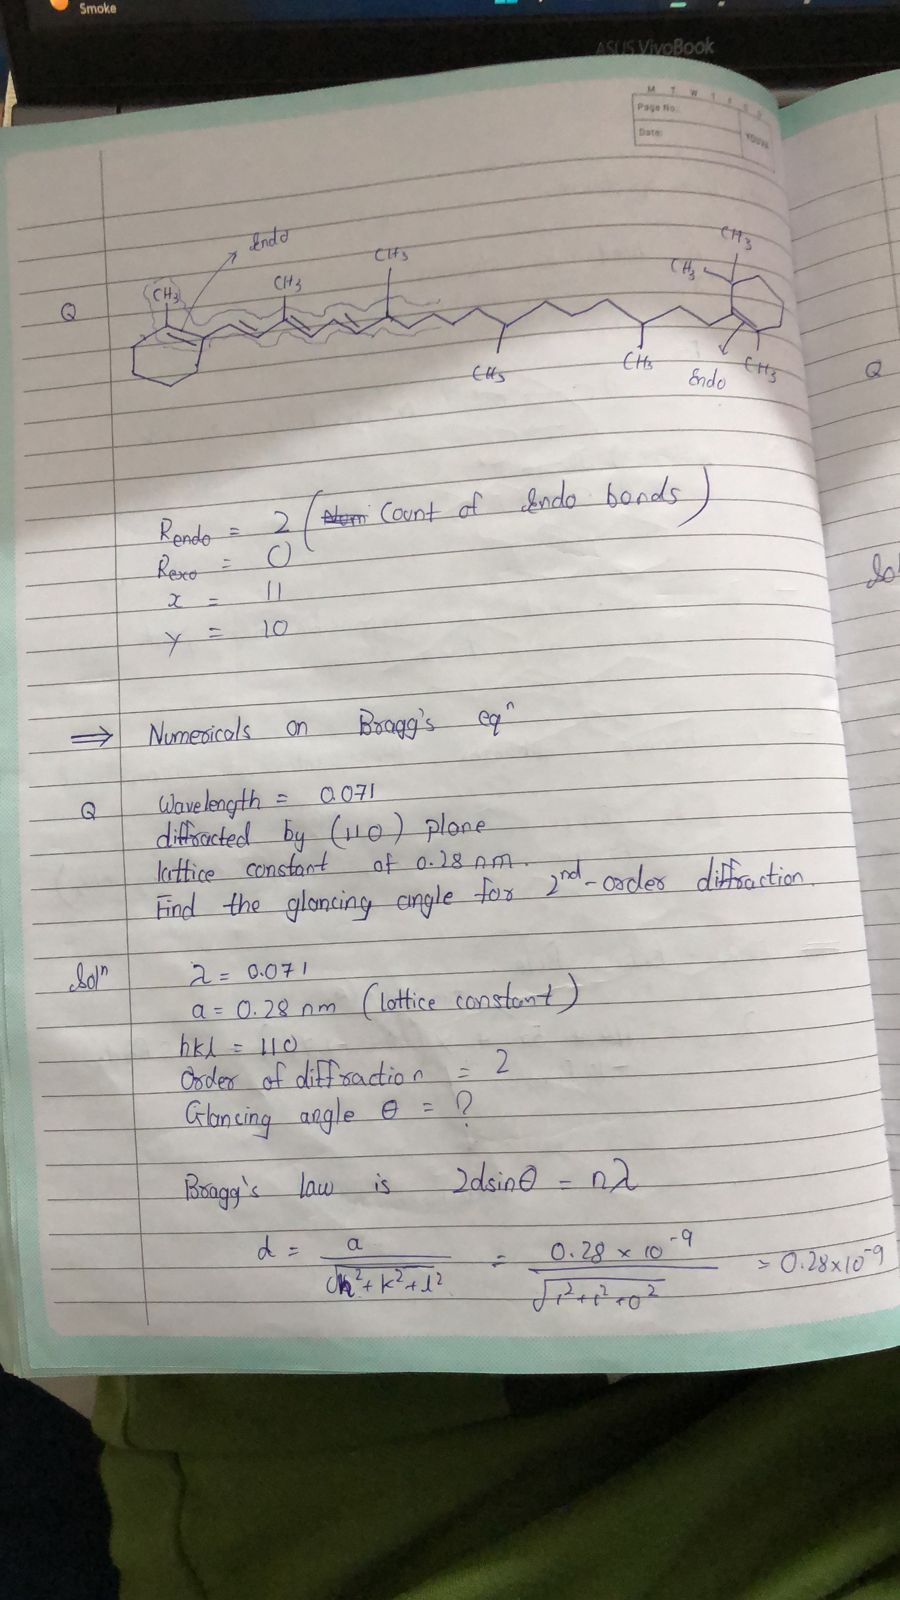 Smoke
ASUS VivoBook
M T W T F S S
Page No.:
Date:
YOUVA
Endo
CH3
CH3
CH3
CH3
CH3
Q
CH3
CH3
Endo
CH3
Q
Rendo = 2 (Num Count of Endo bonds)
Rexo = 0
x = 11
y = 10
⇒ Numericals on Bragg's eqⁿ
Q Wavelength = 0.071
diffracted by (110) plane
lattice constant of 0.28 nm.
Find the glancing angle for 2nd-order diffraction.
Solⁿ λ = 0.071
a = 0.28 nm (lattice constant)
hkl = 110
Order of diffraction = 2
Glancing angle θ = ?
Bragg's law is 2dsinθ = nλ
d = a / √h²+k²+l² = 0.28 × 10⁻⁹ / √1²+1²+0² = 0.28×10⁻⁹